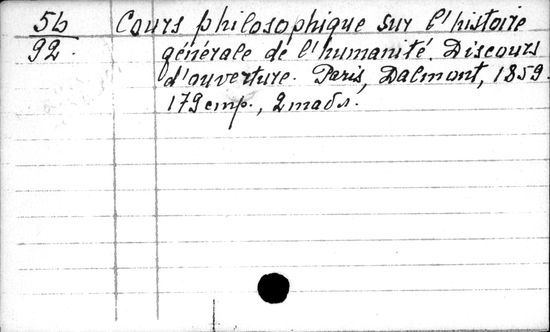 56 Cours philosophique sur l'histoire
92. générale de l'humanité. Discours
d'ouverture. Paris, Dalmont, 1859.
179 стр., 2 табл.